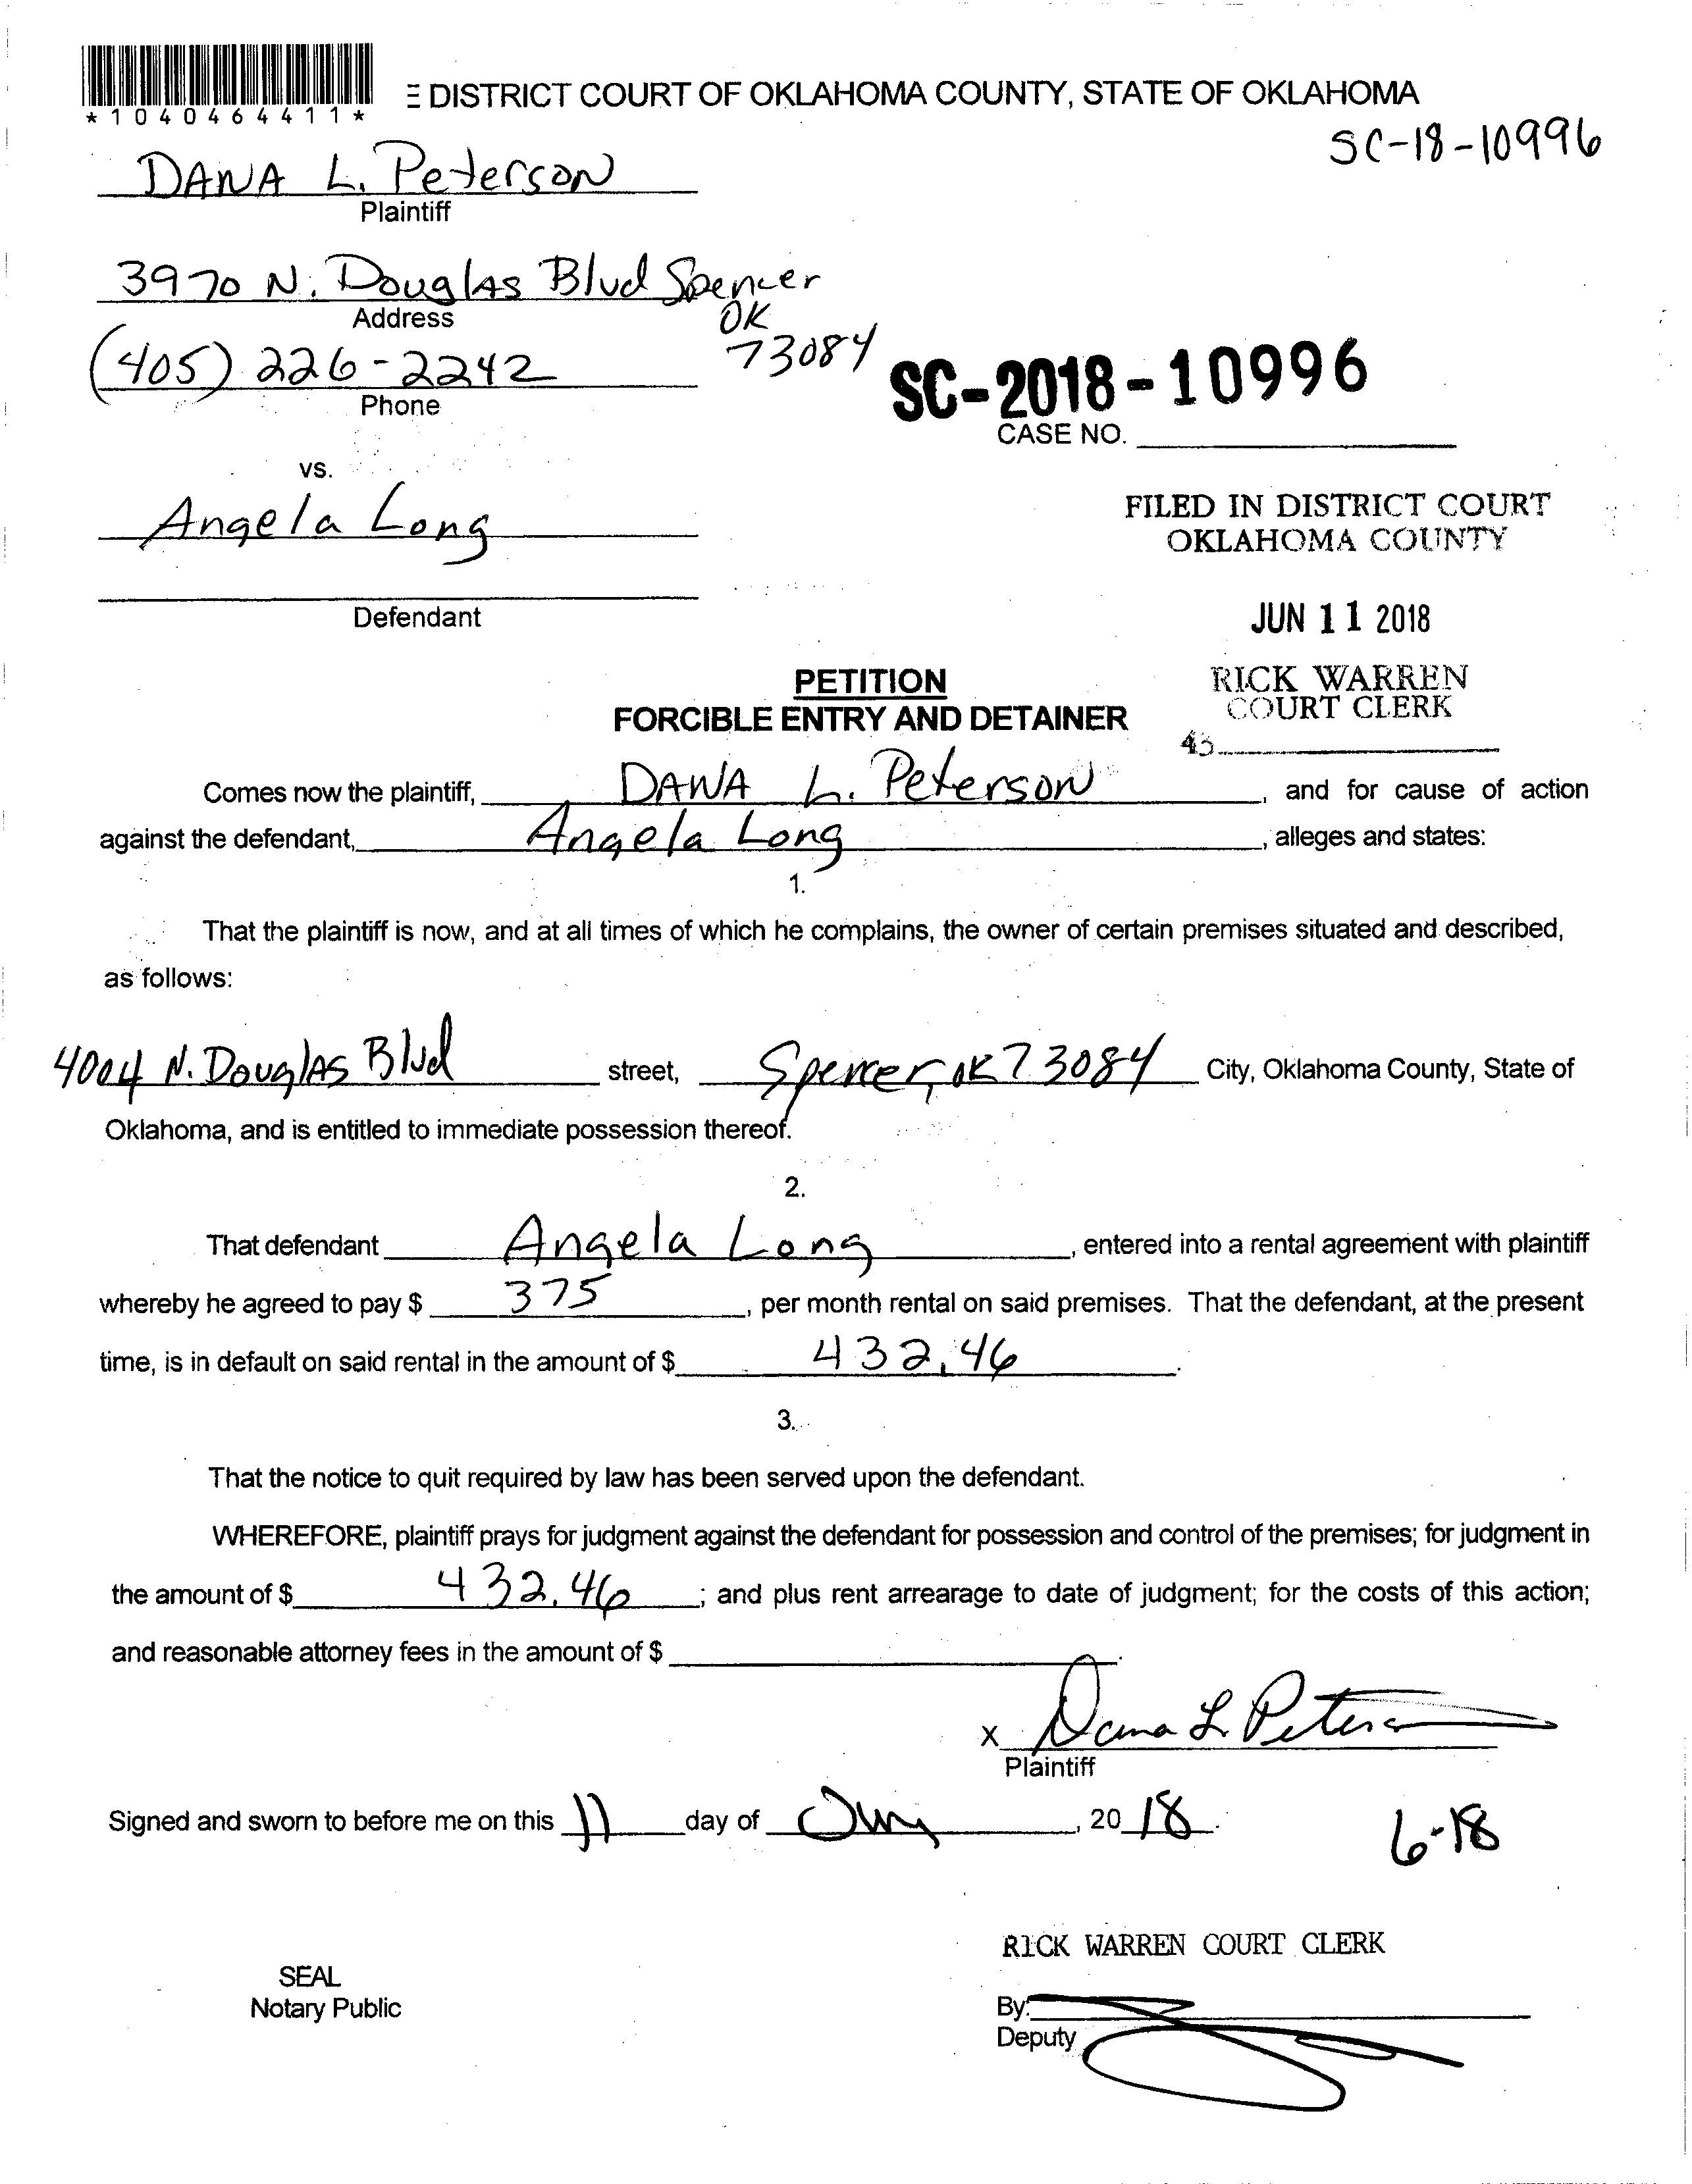 *1040464411*
E DISTRICT COURT OF OKLAHOMA COUNTY, STATE OF OKLAHOMA
SC-18-10996
DANA L. Peterson
Plaintiff
3970 N. Douglas Blvd Spencer
Address
OK
73084
(405) 226-2242
Phone
SC-2018-10996
CASE NO.
vs.
Angela Long
Defendant
FILED IN DISTRICT COURT
OKLAHOMA COUNTY
JUN 11 2018
RICK WARREN
COURT CLERK
43
PETITION
FORCIBLE ENTRY AND DETAINER
Comes now the plaintiff, DANA L. Peterson, and for cause of action
against the defendant, Angela Long, alleges and states:
1.
That the plaintiff is now, and at all times of which he complains, the owner of certain premises situated and described,
as follows:
4004 N. Douglas Blvd street, Spencer, OK 73084 City, Oklahoma County, State of
Oklahoma, and is entitled to immediate possession thereof.
2.
That defendant Angela Long, entered into a rental agreement with plaintiff
whereby he agreed to pay $ 375, per month rental on said premises. That the defendant, at the present
time, is in default on said rental in the amount of $ 432.46.
3.
That the notice to quit required by law has been served upon the defendant.
WHEREFORE, plaintiff prays for judgment against the defendant for possession and control of the premises; for judgment in
the amount of $ 432.46; and plus rent arrearage to date of judgment; for the costs of this action;
and reasonable attorney fees in the amount of $.
x Dana L Peterson
Plaintiff
Signed and sworn to before me on this 11 day of Jun, 20 18.
6-18
RICK WARREN COURT CLERK
SEAL
Notary Public
By:
Deputy